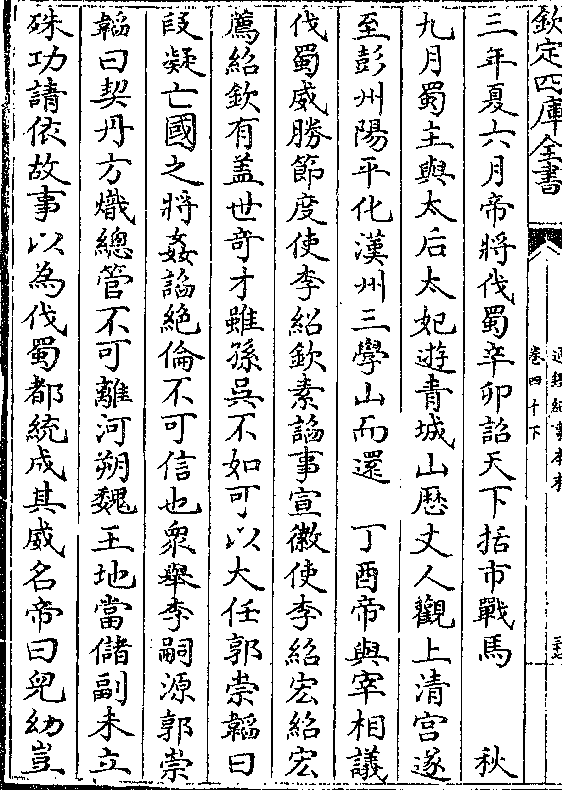 欽定四庫全書
通鑑紀事本末
卷四十下
三年夏六月帝將伐蜀辛卯詔天下括市戰馬　秋
九月蜀主與太后太妃遊青城山歷丈人觀上清宫遂
至彭州陽平化漢州三學山而還　丁酉帝與宰相議
伐蜀威勝節度使李紹欽素諂事宣徽使李紹宏紹宏
薦紹欽有蓋世竒才雖孫吳不如可以大任郭崇韜曰
段凝亡國之將姦諂絶倫不可信也衆舉李嗣源郭崇
韜曰契丹方熾總管不可離河朔魏王地當儲副未立
殊功請依故事以為伐蜀都統成其威名帝曰兒幼豈